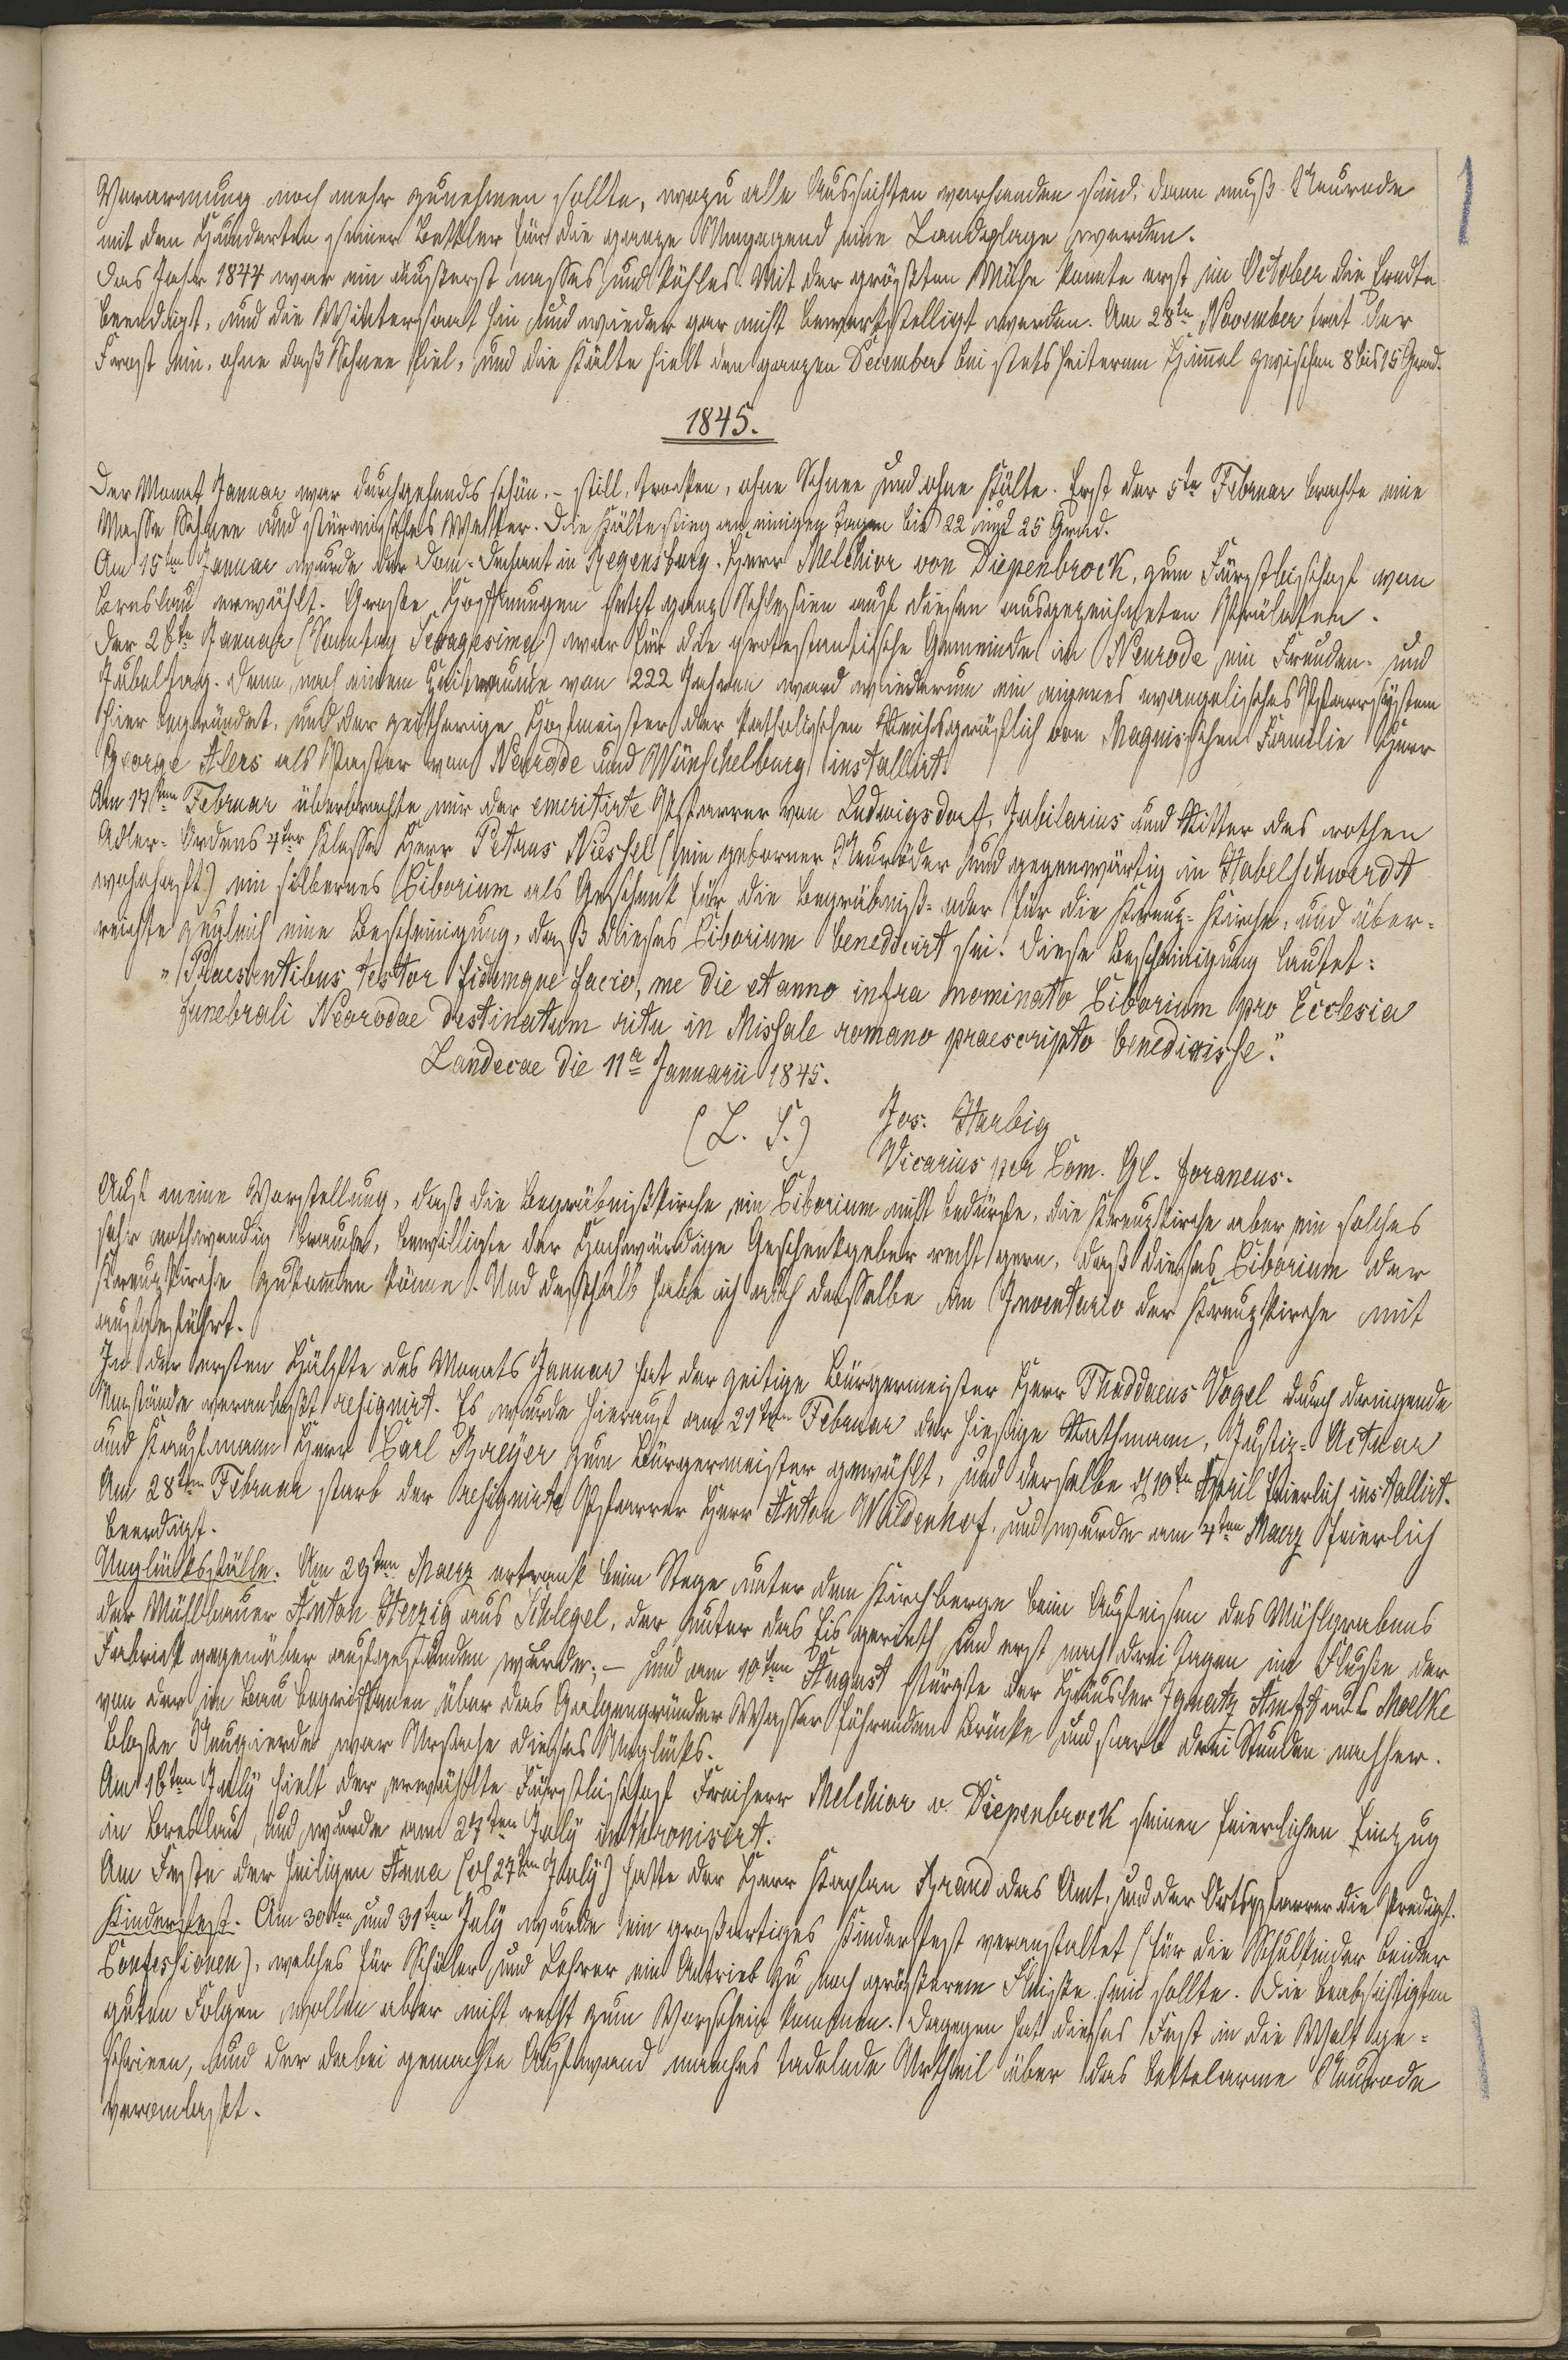 Verarmung noch mehr zunehmen sollte, wozu alle Aussichten vorhanden sind, dann muß Neurode
mit den Hunderten seiner Bettler für die ganze Umgegend eine Landplage werden.
Das Jahr 1844 war ein äußerst nasses und kühles. Mit der größten Mühe konnte erst im October die Erndte
beendigt, und die Wintersaat hin und wieder gar nicht bewerkstelligt werden. Am 28ten November trat der
Frost ein, ohne daß Schnee fiel, und die Kälte hielt den ganzen December bei stets heiterem Himmel zwischen 8 bis 15 Grad.
1845.
Der Monat Januar war durchgehends schön, – still, trocken, ohne Schnee und ohne Kälte. Erst der 5te Februar brachte eine
Masse Schnee und stürmisches Wetter. Die Kälte stieg an einigen Tagen bis 22 und 25 Grad.
Am 15ten Januar wurde der Dom-Dechant in Regensburg, Herr Melchior von Diepenbrock, zum Fürstbischof von
Breslau erwählt. Große Hoffnungen setzt ganz Schlesien auf diesen ausgezeichneten Prälaten.
Der 26te Januar (Sonntag Sexagesima) war für die protestantische Gemeinde in Neurode ein Freuden- und
Jubeltag. Denn nach einem Zeitraume von 222 Jahren ward wiederum ein eigenes evangelisches Pfarrsystem
hier begründet, und der zeitherige Hofmeister der katholischen Reichsgräflich von Magnisschen Familie Herr
George Alers als Pastor von Neurode und Wünschelburg installirt.
Am 17ten Februar überbrachte mir der emeritirte Pfarrer von Ludwigsdorf, Jubilarius und Ritter des rothen
Adler-Ordens 4ter Klasse Herr Petrus Niessel (ein geborner Neuröder und gegenwärtig in Habelschwerdt
wohnhaft) ein silbernes Ciborium als Geschenk für die Begräbniß- oder für die Kreuz-Kirche, und über-
reichte zugleich eine Bescheinigung, daß dieses Ciborium benedicirt sei. Diese Bescheinigung lautet:
"Praesentibus testor fidemque facio, me die et anno infra nominato Ciborium pro Ecclesia
funebrali Neorodae destinatum ritu in Missale romano praescripto benedixisse."
Landecae die 11a Januarii 1845.
(L. S.) Jos. Harbig
Vicarius per Com. Gl. foraneus.
Auf meine Vorstellung, daß die Begräbnißkirche ein Ciborium nicht bedürfe, die Kreuzkirche aber ein solches
sehr nothwendig brauche, bewilligte der Hochwürdige Geschenkgeber recht gern, daß dieses Ciborium der
Kreuzkirche zukomen könne. Und deßhalb habe ich auch dasselbe im Inventario der Kreuzkirche mit
aufgeführt.
In der ersten Hälfte des Monats Januar hat der zeitige Bürgermeister Herr Thaddaeus Vogel durch dringende
Umstände veranlaßt resignirt. Es wurde hierauf am 21ten Februar der hiesige Rathmann, Justiz-Actuar
und Kaufmann Herr Carl Breyer zum Bürgermeister gewählt, und derselbe d 10ten April feierlich installirt.
Am 28ten Februar starb der resignirte Pfarrer Herr Anton Wildenhof, und wurde am 4ten Maerz feierlich
beerdigt.
Unglücksfälle. Am 29ten Maerz ertrank beim Stege unter dem Kirchberge beim Aufeisen des Mühlgrabens
der Mühlbauer Anton Herzig aus Schlegel, der unter das Eis gerieth und erst nach drei Tagen im Flusse der
Fabrik gegenüber aufgefunden wurde; – und am 10ten August stürzte der Häusler Ignatz Amft aus Moelke
von der im Bau begriffenen über das Galgengründer Wasser führenden Brücke und starb drei Stunden nachher.
Bloße Neugierde war Ursache dieses Unglücks.
Am 16ten July hielt der erwählte Fürstbischof Freiherr Melchior v. Diepenbrock seinen feierlichen Einzug
in Breslau, und wurde am 27ten July inthronisirt.
Am Feste der heiligen Anna (d 27ten July) hatte der Herr Kaplan Brand das Amt, und der Ortspfarrer die Predigt.
Kinderfest. Am 30ten und 31ten July wurde ein großartiges Kinderfest veranstaltet (für die Schulkinder beider
Confessionen), welches für Schüler und Lehrer ein Antrieb zu noch größerem Fleiße sein sollte. Die beabsichtigten
guten Folgen wollen aber nicht recht zum Vorschein kommen. Dagegen hat dieses Fest in die Welt ge-
schrieen, und der dabei gemachte Aufwand manches tadelnde Urtheil über das bettelarme Neurode
veranlaßt.